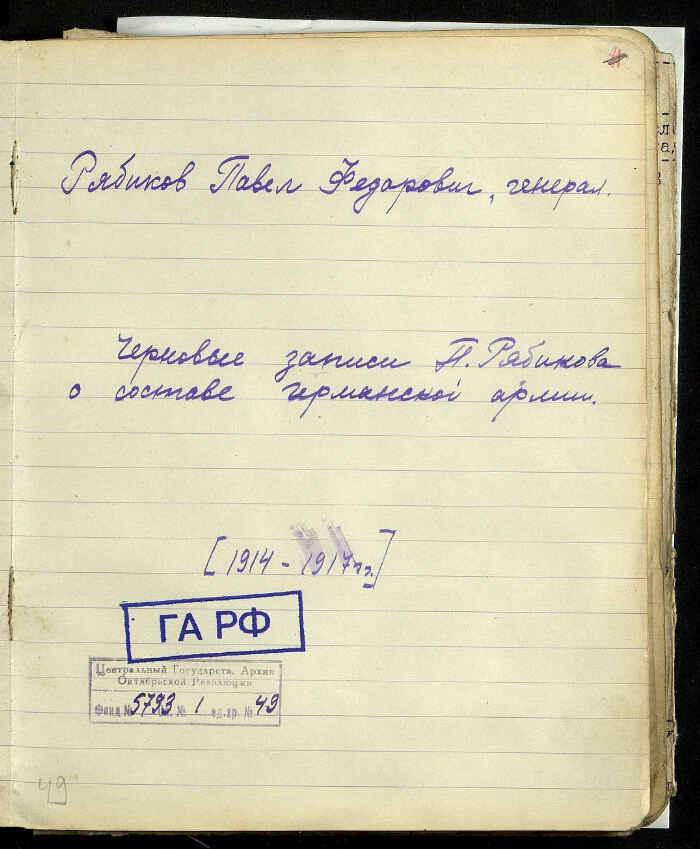 Рябиков Павел Федорович, генерал.
Черновые записи П. Рябикова
о составе германской армии.
[1914 - 1917гг.]
ГА РФ
Центральный Государств. Архив
Октябрьской Революции
Фонд № 5793 оп. № 1 ед. хр. № 49
49